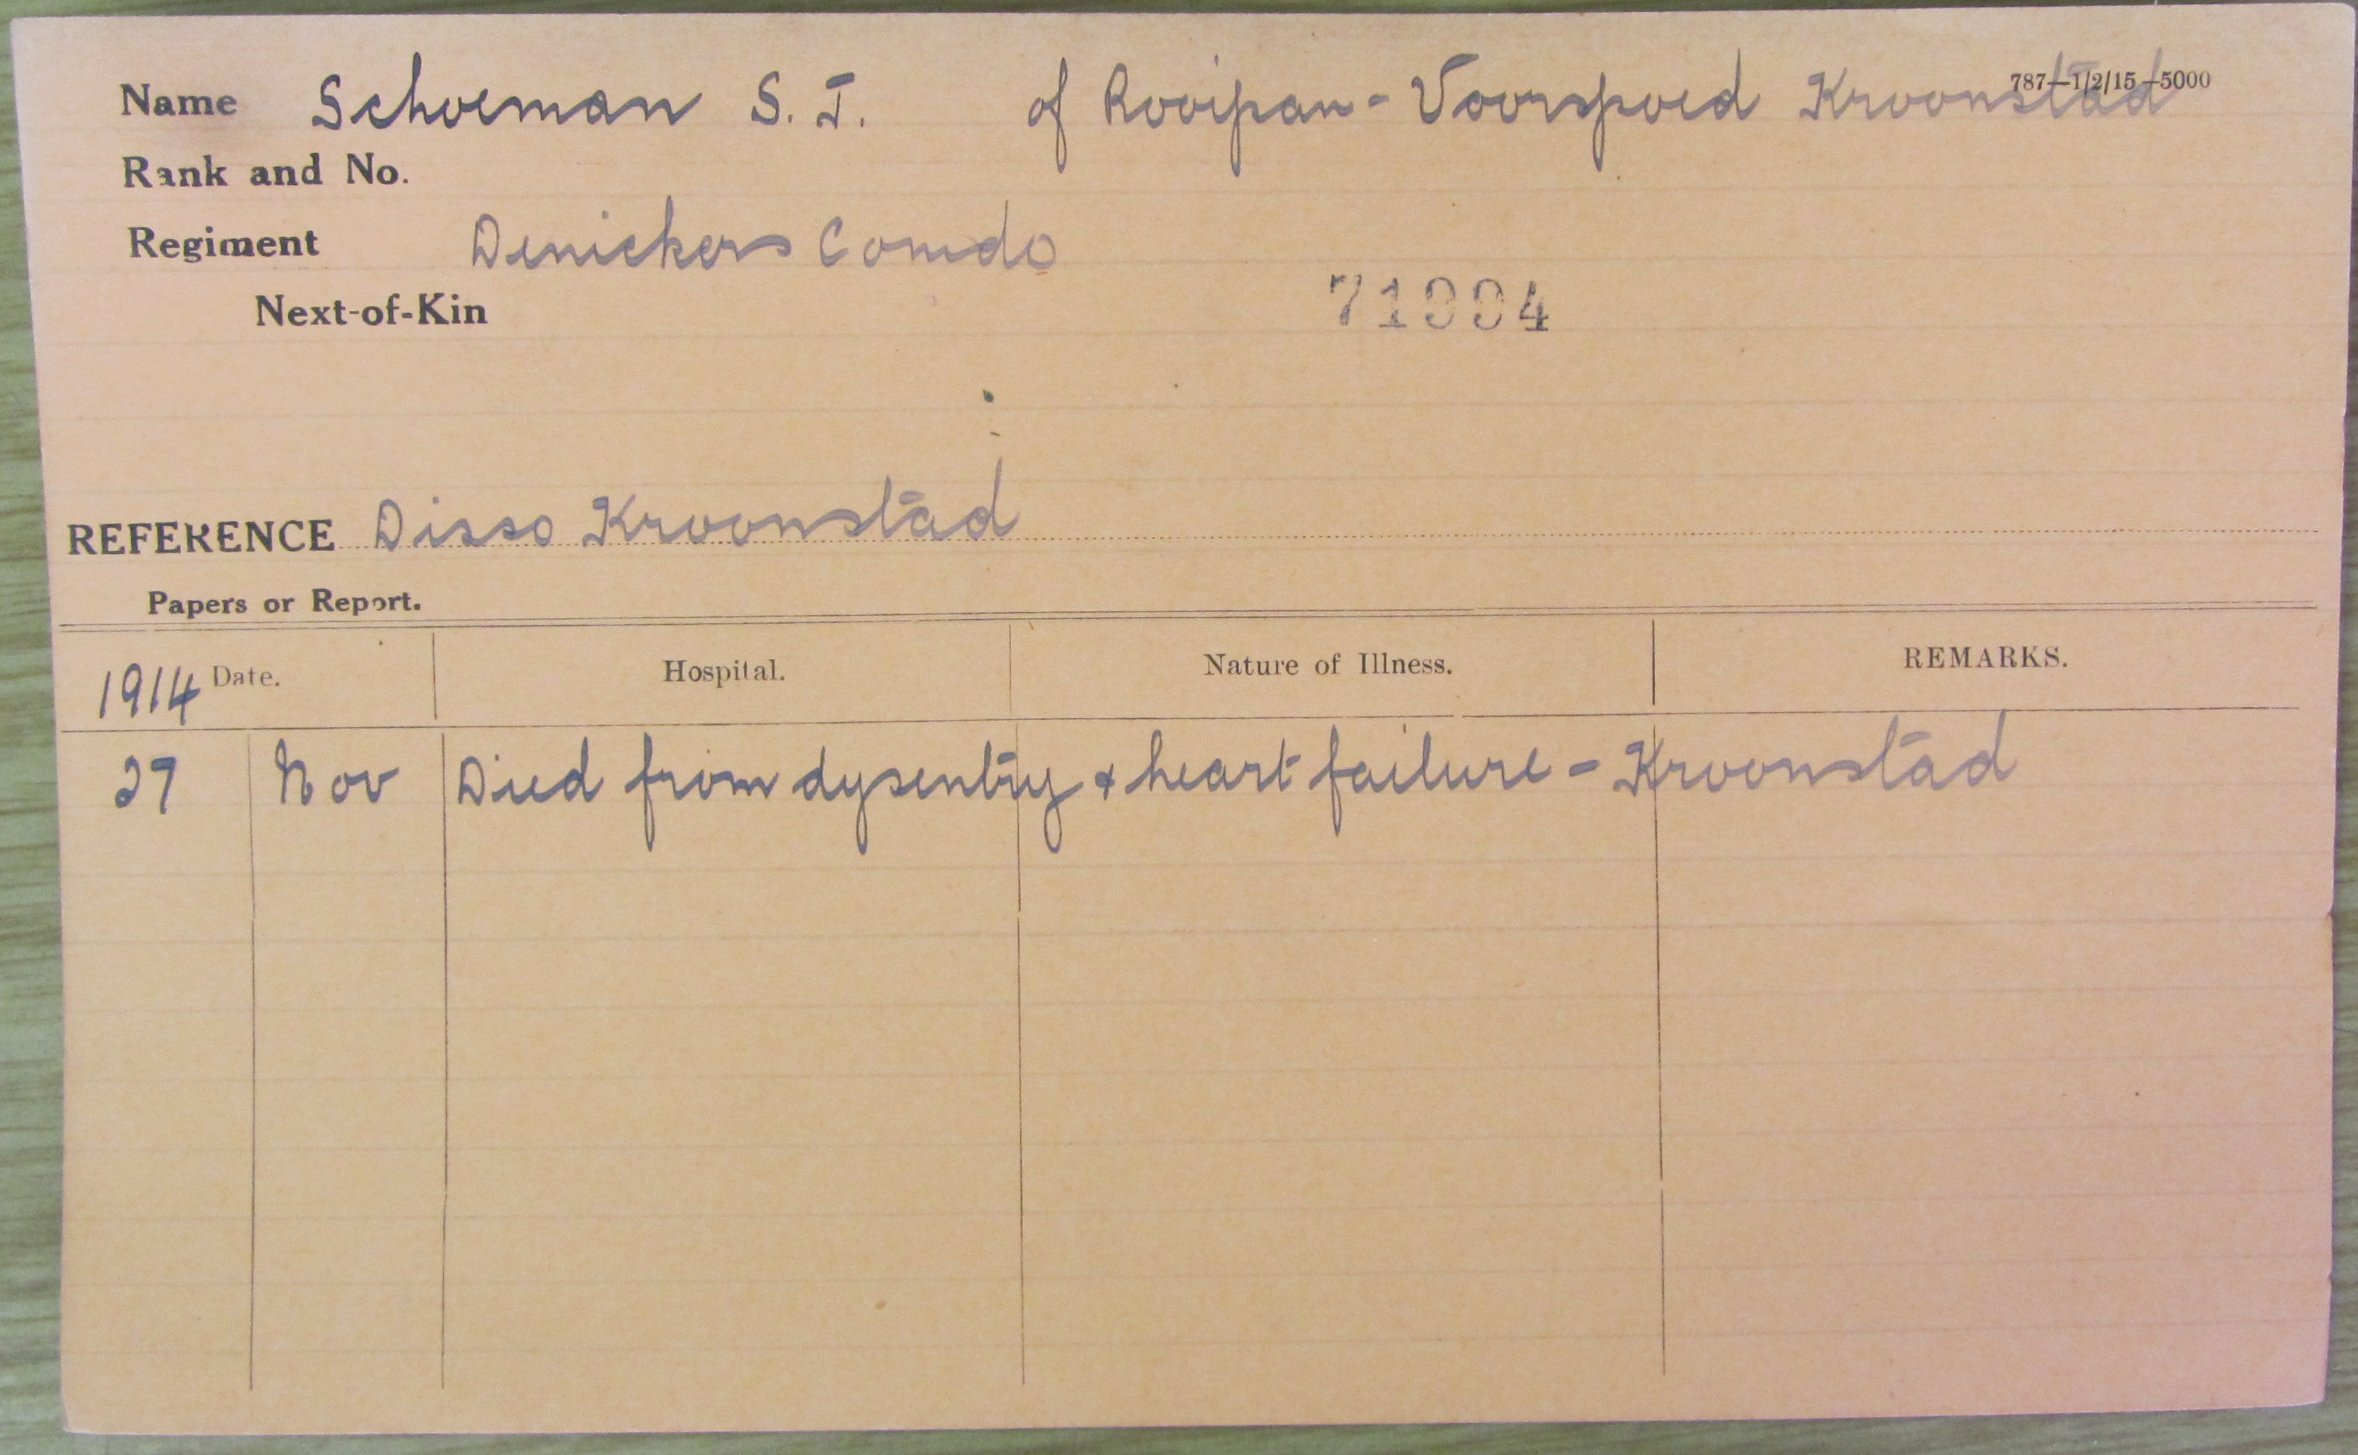 787—1/2/15—5000
Name Schoeman S. J. of Rooipan - Voorspoed Kroonstad
Rank and No.
Regiment Denickers Comdo
Next-of-Kin
71994
REFERENCE Disso Kroonstad
Papers or Report.
1914 Date. Hospital. Nature of Illness. REMARKS.
27 Nov Died from dysentry & heart failure - Kroonstad